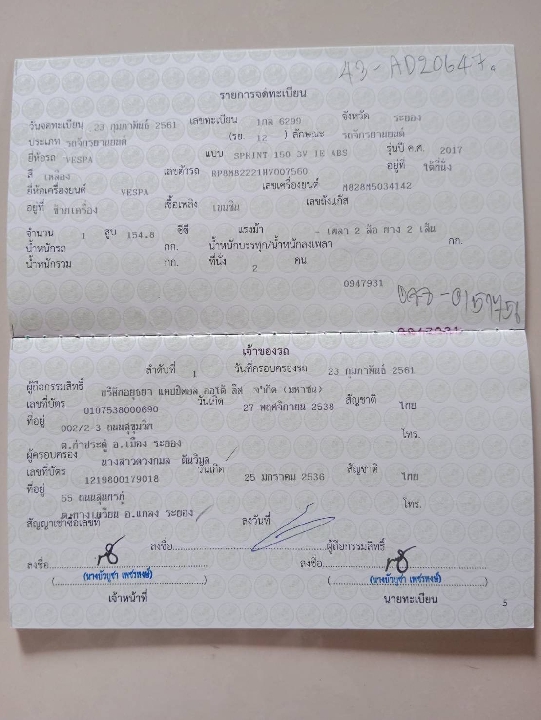 43-AD20647
รายการจดทะเบียน
วันจดทะเบียน 23 กุมภาพันธ์ 2561 เลขทะเบียน 1กล 6299 จังหวัด ระยอง
ประเภท รถจักรยานยนต์ (รย. 12 ) ลักษณะ รถจักรยานยนต์
ยี่ห้อรถ VESPA แบบ SPRINT 150 3V IE ABS รุ่นปี ค.ศ. 2017
สี เหลือง เลขตัวรถ RP8M82221HV007560 อยู่ที่ ใต้ที่นั่ง
ยี่ห้อเครื่องยนต์ VESPA เลขเครื่องยนต์ M828M5034142
อยู่ที่ ข้างเครื่อง เชื้อเพลิง เบนซิน เลขถังแก๊ส
จำนวน 1 สูบ 154.8 ซีซี แรงม้า - เพลา 2 ล้อ ยาง 2 เส้น
น้ำหนักรถ กก. น้ำหนักบรรทุก/น้ำหนักลงเพลา กก.
น้ำหนักรวม กก. ที่นั่ง 2 คน
0947931
เจ้าของรถ
ลำดับที่ 1 วันที่ครอบครองรถ 23 กุมภาพันธ์ 2561
ผู้ถือกรรมสิทธิ์ บริษัทอยุธยา แคปปิตอล ออโต้ ลีส จำกัด (มหาชน)
เลขที่บัตร 0107538000690 วันเกิด 27 พฤศจิกายน 2538 สัญชาติ ไทย
ที่อยู่ 002/2-3 ถนนสุขุมวิท โทร.
ต.ท่าประดู่ อ.เมือง ระยอง
ผู้ครอบครอง นางสาวดวงกมล
เลขที่บัตร 1219800179018 วันเกิด 25 มกราคม 2536 สัญชาติ ไทย
ที่อยู่ 55 ถนนสุนทรภู่ โทร.
ต.ทางเกวียน อ.แกลง ระยอง
สัญญาเช่าซื้อเลขที่ ลงวันที่
ลงชื่อ ผู้ถือกรรมสิทธิ์
ลงชื่อ ลงชื่อ
(นางบัวบูชา เพชรพงษ์) (นางบัวบูชา เพชรพงษ์)
เจ้าหน้าที่ นายทะเบียน
5